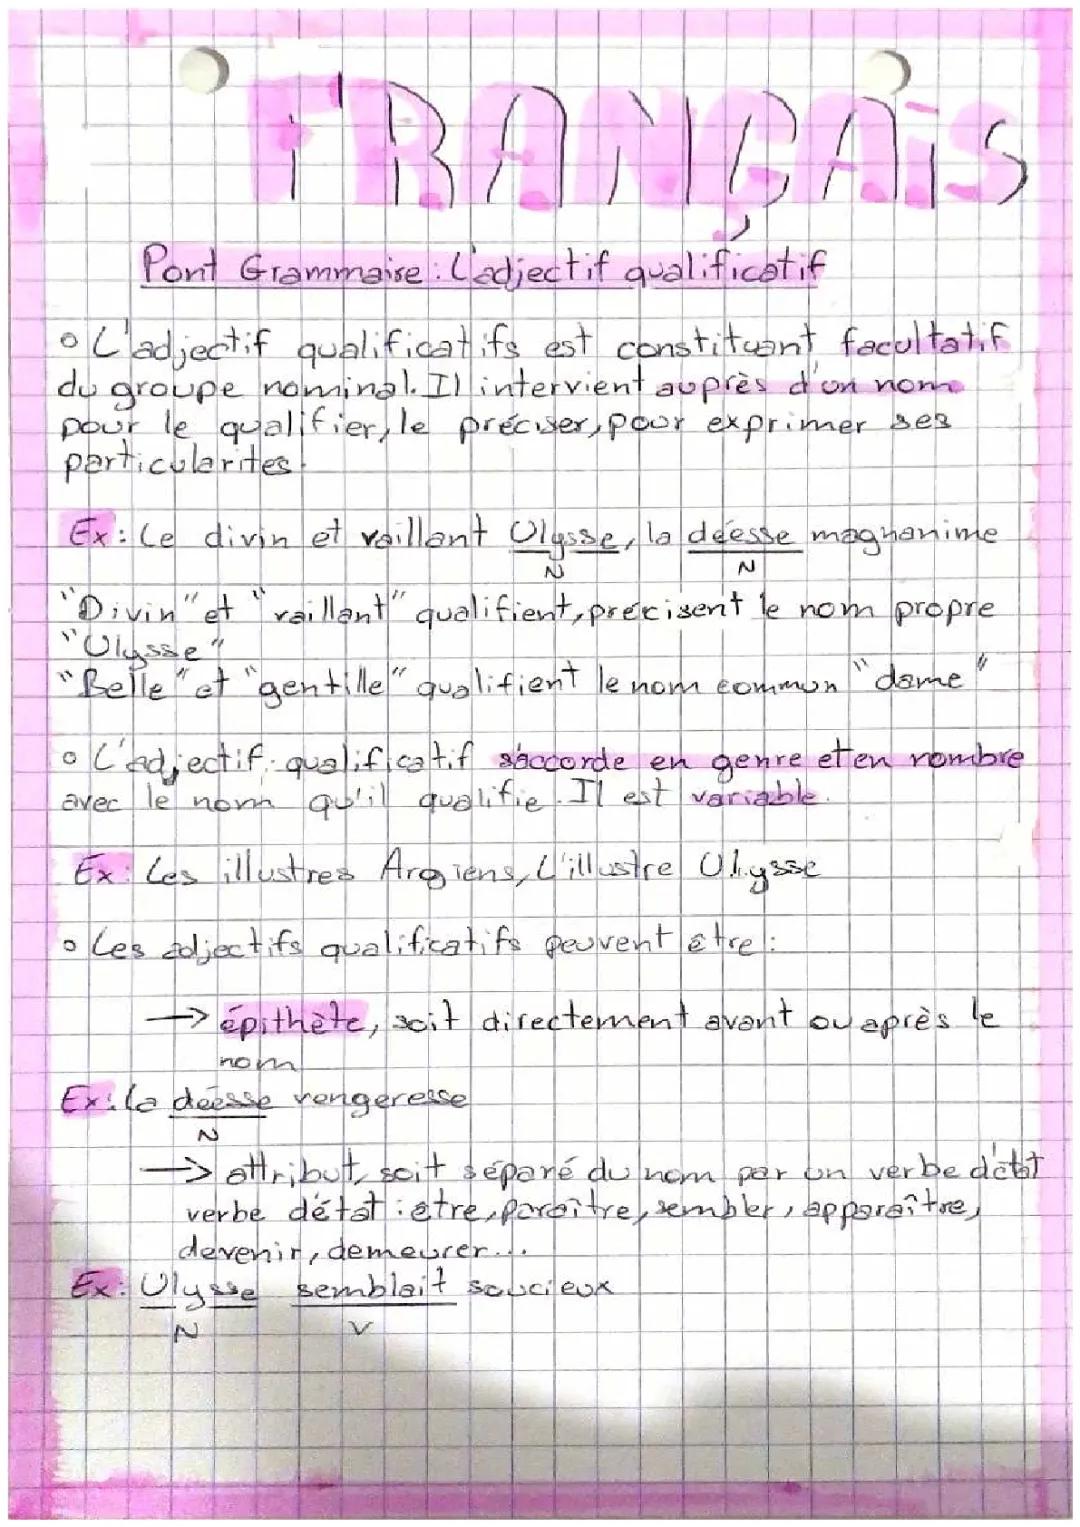 FRANÇAiS
Pont Grammaire : L'adjectif qualificatif
L'adjectif qualificatifs est constituant facultatif
du groupe nominal. Il intervient auprès d'un nom
pour le qualifier, le préciser, pour exprimer ses
particularites.
Ex : Le divin et vaillant Ulysse, la déesse magnanime
N N
"Divin" et "vaillant" qualifient, précisent le nom propre
"Ulysse"
"Belle" et "gentille" qualifient le nom commun "dame"
L'adjectif qualificatif s'accorde en genre et en nombre
avec le nom qu'il qualifie. Il est variable.
Ex : Les illustres Argiens, L'illustre Ulysse
Les adjectifs qualificatifs peuvent être :
→ épithète, soit directement avant ou après le
nom
Ex : La déesse vengeresse
N
→ attribut, soit séparé du nom par un verbe d'état
verbe d'état : être, paraître, sembler, apparaître,
devenir, demeurer...
Ex : Ulysse semblait soucieux
N V